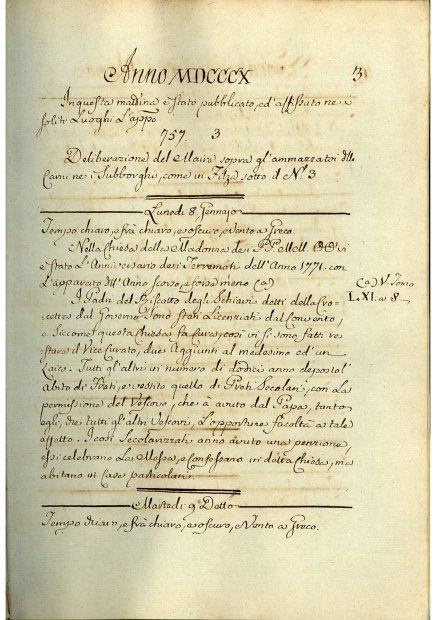 Anno MDCCCX
3
In questa mattina è stato pubblicato, ed'affissato ne i
soliti Luoghi L'appo
757 3
Deliberazione del Maire sopra gl'ammazzatori dlle
Carni ne i Subborghi, come in Filza sotto il N.º 3
Lunedi 8. Gennajo
Tempo chiaro, e frà chiaro, e oscuro, e Vento a Greco.
Nella Chiesa della Madonna dei PP. Mell. OO vi
è stato L'Anniversario dei Terremoti dell'Anno 1771. con
L'apparato dell'Anno scorso, e fono meno (a)
(a) V. Tomo
L. XI. a 8
I Padri del Riscatto degli Schiavi detti della Cro-
cetta dal Governo sono stati Licenziati dal Convento,
e siccome questa Chiesa fa Cura, così vi si sono fatti re-
stare il Vice Curato, due Aggiunti al medesimo ed'un
Laico. Tutti gl'altri in numero di dodici anno deposto l'
Abito di Frati, e vestito quello di Preti Secolari, con la
permissione del Vescovo, che à avuto dal Papa, tanto
egli, che tutti gl'altri Vescovi, L'opportune facoltà a tale
effetto. I così Secolarizzati anno avuto una penzione,
essi celebrano La Messa, e Confessano in detta Chiesa, ma
abitano in Case particolari.
Martedi 9 Detto
Tempo chiaro, e frà chiaro, e oscuro, e Vento a Greco.